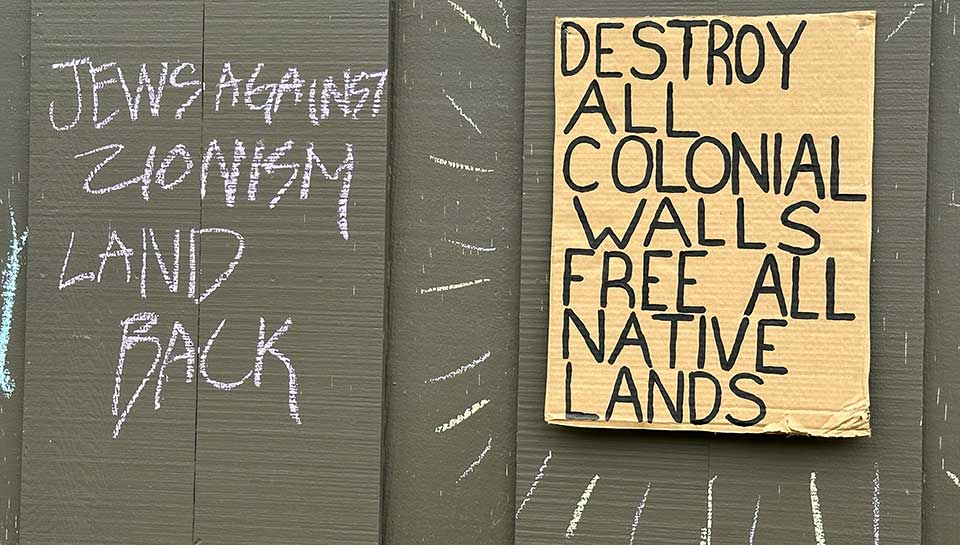 JEWS AGAINST
ZIONISM
LAND
BACK
DESTROY
ALL
COLONIAL
WALLS
FREE ALL
NATIVE
LANDS